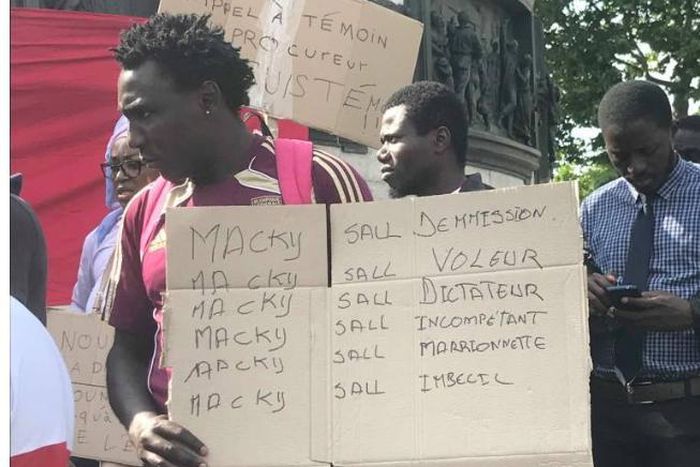 PPEL À TÉMOIN
PROCUREUR
MACKY SALL DEMMISSION.
MACKY SALL VOLEUR
MACKY SALL DICTATEUR
MACKY SALL INCOMPÉTANT
MACKY SALL MARRIONNETTE
MACKY SALL IMBECIL
NOU
A D
LE.